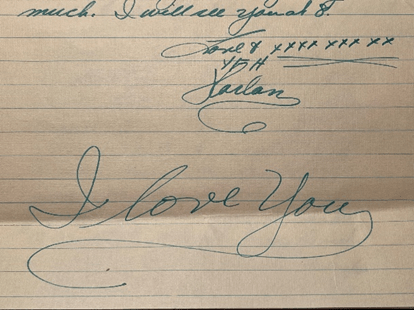 much. I will see you at 8.
Love & xxxx xxx xx
YDH
Harlan
I love You